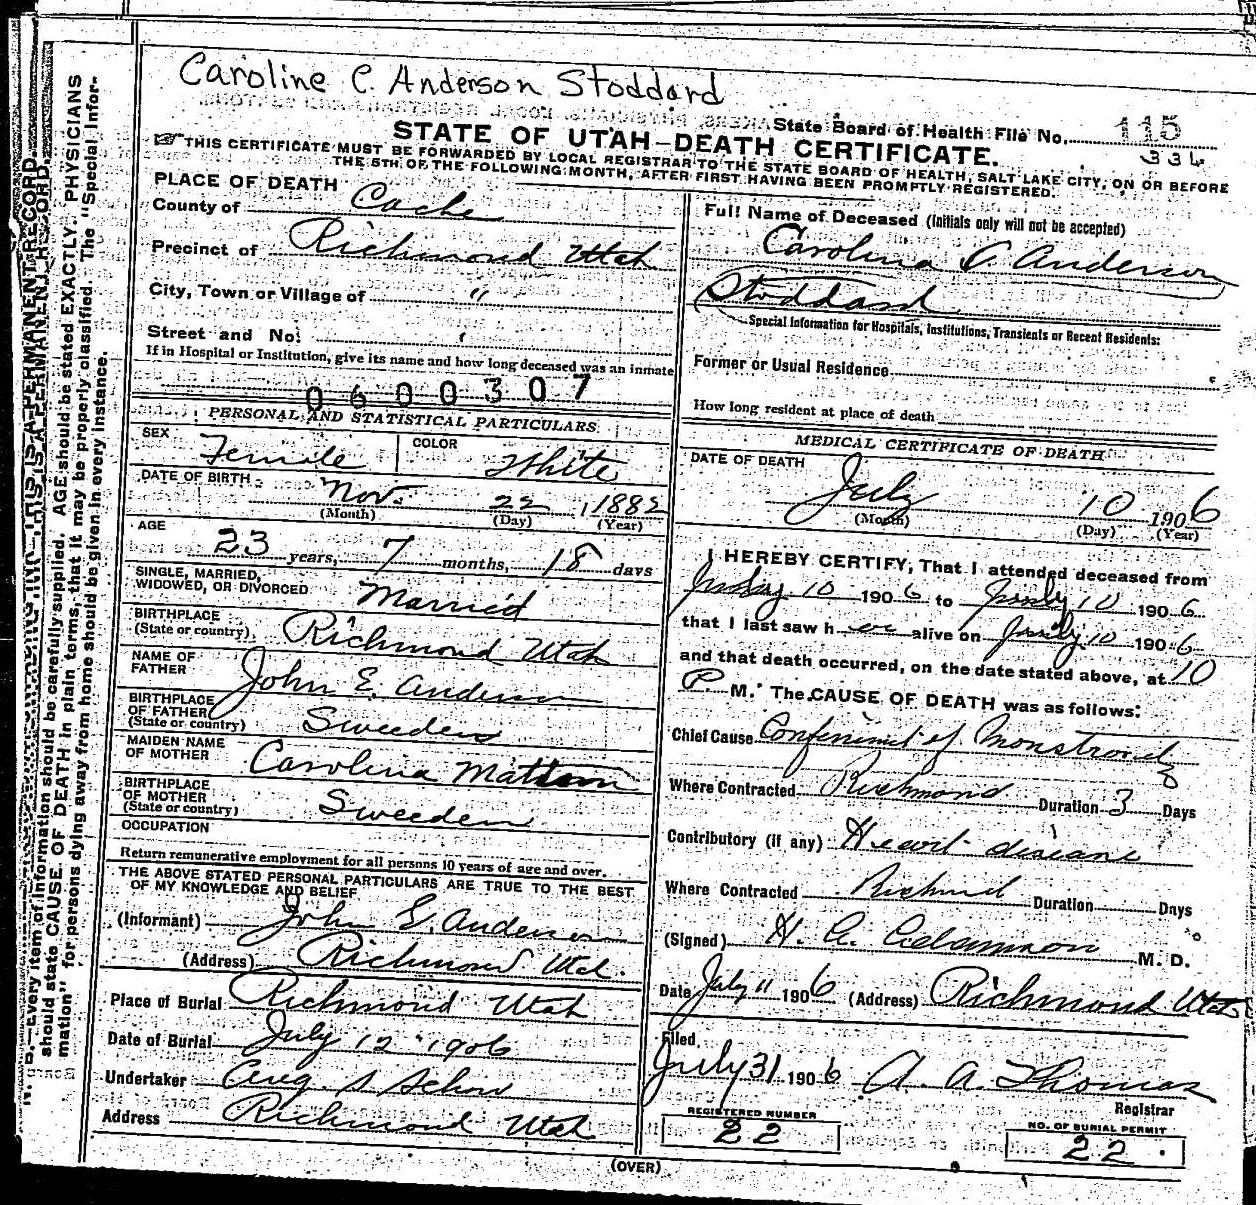 Caroline C. Anderson Stoddard
State Board of Health File No. 115
336
STATE OF UTAH—DEATH CERTIFICATE.
THIS CERTIFICATE MUST BE FORWARDED BY LOCAL REGISTRAR TO THE STATE BOARD OF HEALTH, SALT LAKE CITY, ON OR BEFORE
THE 5TH OF THE FOLLOWING MONTH, AFTER FIRST HAVING BEEN PROMPTLY REGISTERED.
PLACE OF DEATH
County of Cache
Precinct of Richmond Utah
City, Town or Village of "
Street and No.
If in Hospital or Institution, give its name and how long deceased was an inmate
0600307
PERSONAL AND STATISTICAL PARTICULARS
SEX Female COLOR White
DATE OF BIRTH Nov. 22, 1882
(Month) (Day) (Year)
AGE 23 years, 7 months, 18 days
SINGLE, MARRIED, WIDOWED, OR DIVORCED Married
BIRTHPLACE (State or country) Richmond Utah
NAME OF FATHER John E. Anderson
BIRTHPLACE OF FATHER (State or country) Sweeden
MAIDEN NAME OF MOTHER Carolina Mattson
BIRTHPLACE OF MOTHER (State or country) Sweeden
OCCUPATION
Return remunerative employment for all persons 10 years of age and over.
THE ABOVE STATED PERSONAL PARTICULARS ARE TRUE TO THE BEST
OF MY KNOWLEDGE AND BELIEF
(Informant) John E. Anderson
(Address) Richmond Utah.
Place of Burial Richmond Utah
Date of Burial July 12 1906
Undertaker Aug. S Schow
Address Richmond Utah
Full Name of Deceased (Initials only will not be accepted)
Carolina C Anderson
Stoddard
Special Information for Hospitals, Institutions, Transients or Recent Residents:
Former or Usual Residence
How long resident at place of death
MEDICAL CERTIFICATE OF DEATH
DATE OF DEATH
July 10 1906
(Month) (Day) (Year)
I HEREBY CERTIFY, That I attended deceased from
July 10 1906 to July 10 1906
that I last saw her alive on July 10 1906
and that death occurred, on the date stated above, at 10
P. M. The CAUSE OF DEATH was as follows:
Chief Cause of
Where Contracted Richmond Duration 3 Days
Contributory (if any) Heart disease
Where Contracted Richmond Duration Days
(Signed) H. M. D.
Date July 11 1906 (Address) Richmond Utah
Filed
July 31 1906 A. A. Thomas
Registrar
REGISTERED NUMBER
22
NO. OF BURIAL PERMIT
22
(OVER)
N. B.—Every item of information should be carefully supplied. AGE should be stated EXACTLY. PHYSICIANS
should state CAUSE OF DEATH in plain terms, that it may be properly classified. The "Special Infor-
mation" for persons dying away from home should be given in every instance.